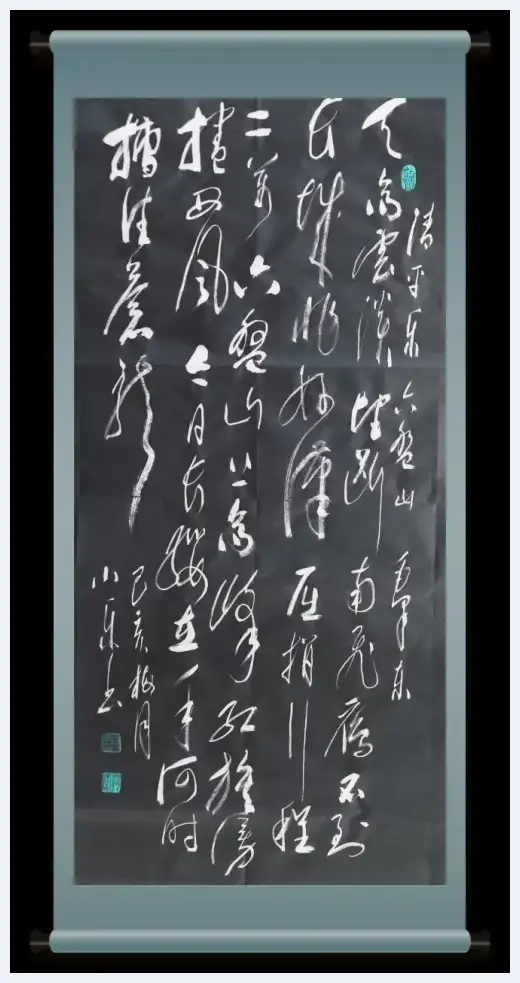 清平乐 六盤山 毛泽东
天高雲淡 望断南飛雁 不到
长城非好漢 屈指行程
二萬 六盤山上高峰 红旗漫
捲西风 今日长缨在手 何时
縛住蒼龙
己亥梅月
小乐书